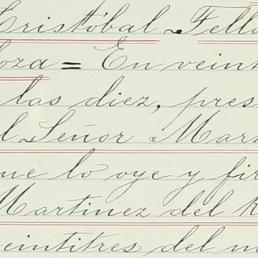 Cristóbal Fello
oza = En veint
las diez, pres
l Señor Mart
ue lo oye y fir
Martinez del R
veintitres del m